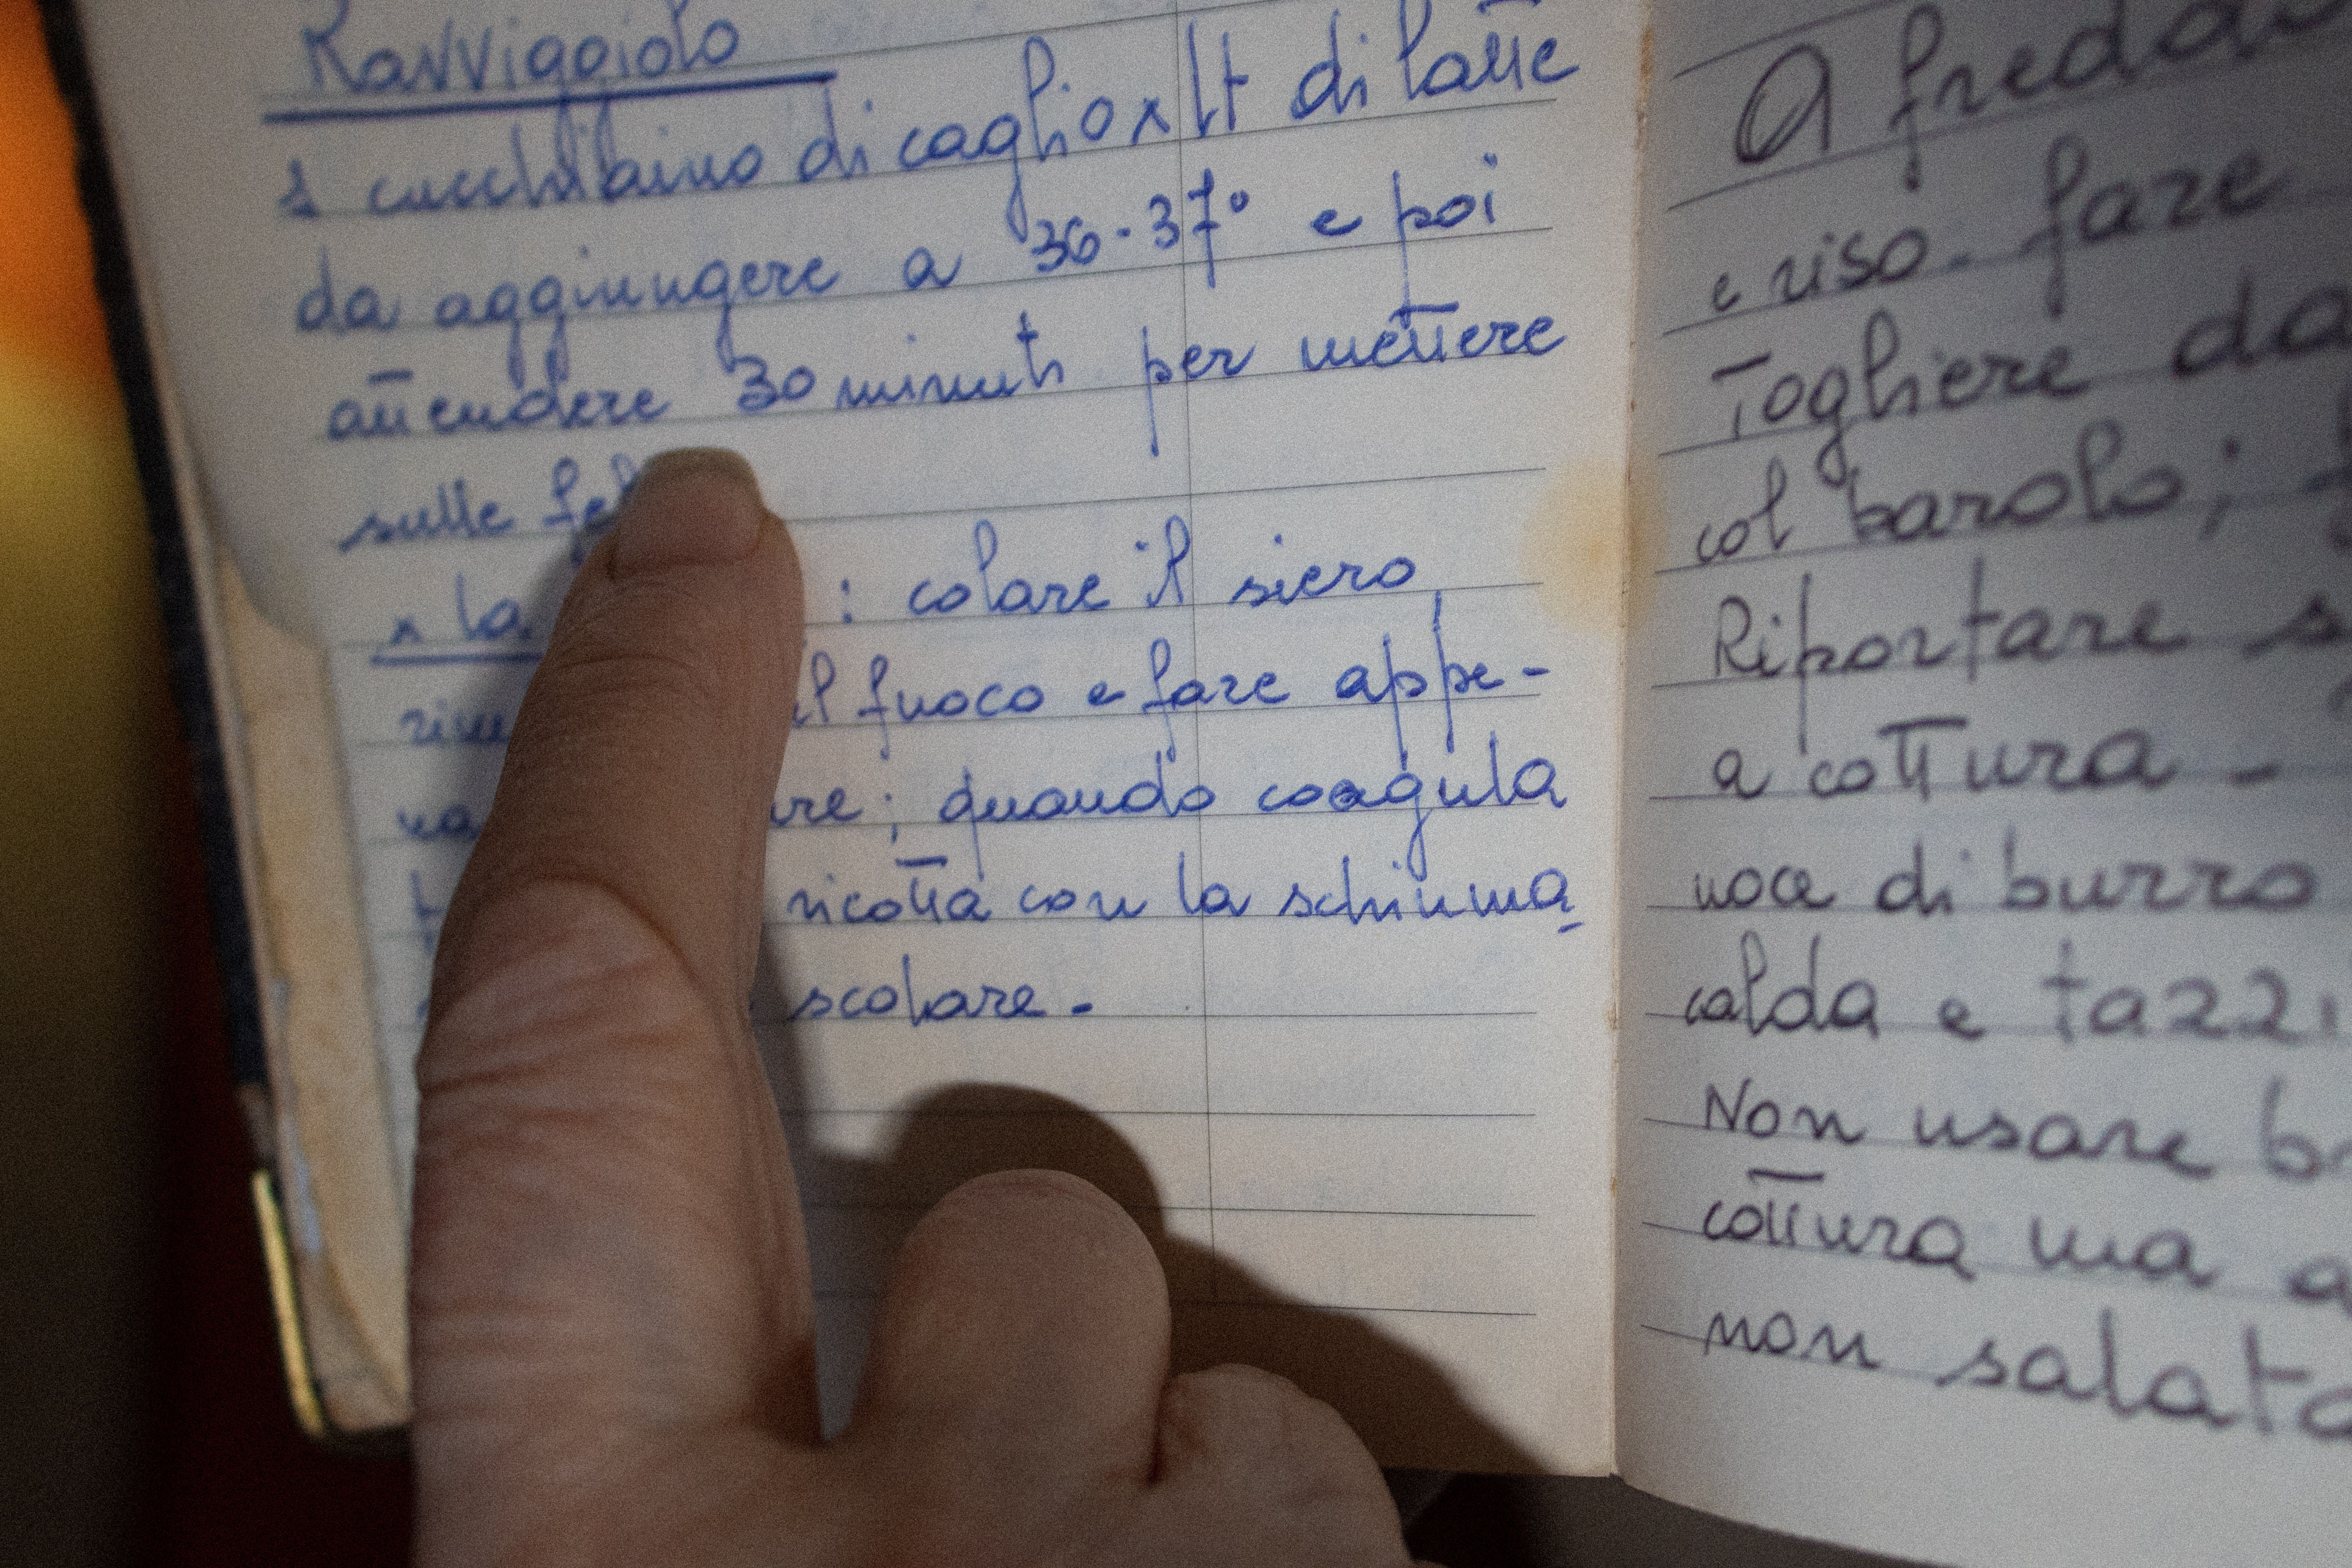 Ravviggiolo
1 cucchiaino di caglio x lt di latte
da aggiungere a 36-37° e poi
attendere 30 minuti per mettere
sulle
x la : colare il siero
il fuoco e fare appe-
; quando coagula
ricotta con la schiuma
scolare.-
A
e riso. fare
Togliere
col barolo;
Riportare
a cottura -
noce di burro
calda e
Non usare
cottura ma
non